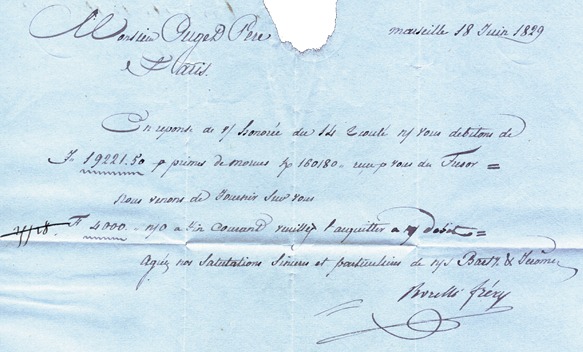 Monsieur Puget Père marseille 18 Juin 1829
Paris.
En reponse de v/ honorée du 14 Ecoulé n/ vous debitons de
F 19221.50 p primes de morues k/ 160180 .. reçu p vous du Tresor =
Nous venons de fournir sur vous
F 4000 .. n/o a fin Courant veuillez l'acquitter a n/ debit =
Agréez nos Salutations Sinceres et particulieres de n/s Barth. & Jerôme
Borelli frères